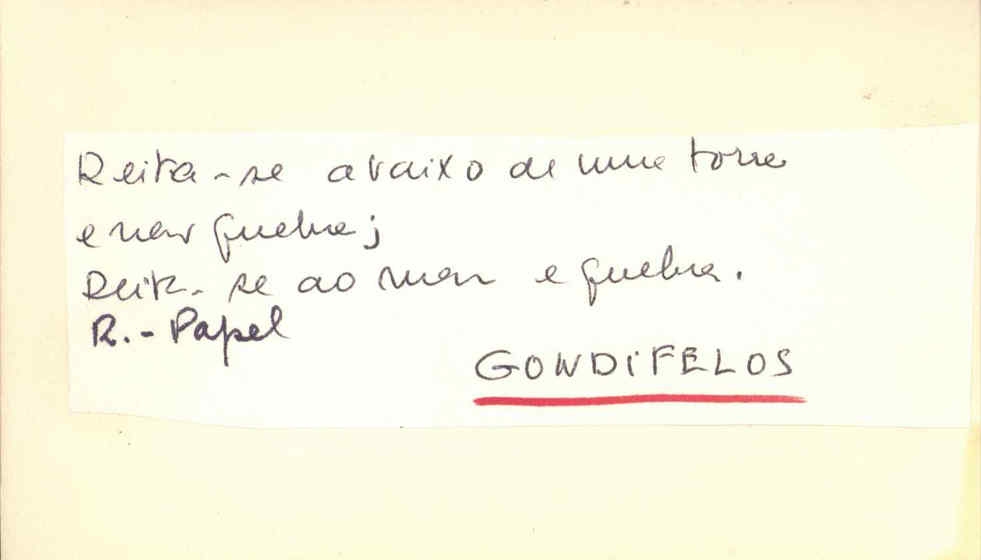 Deita-se abaixo de uma torre
e não quebra;
Deita-se ao mar e quebra.
R.- Papel
GONDIFELOS